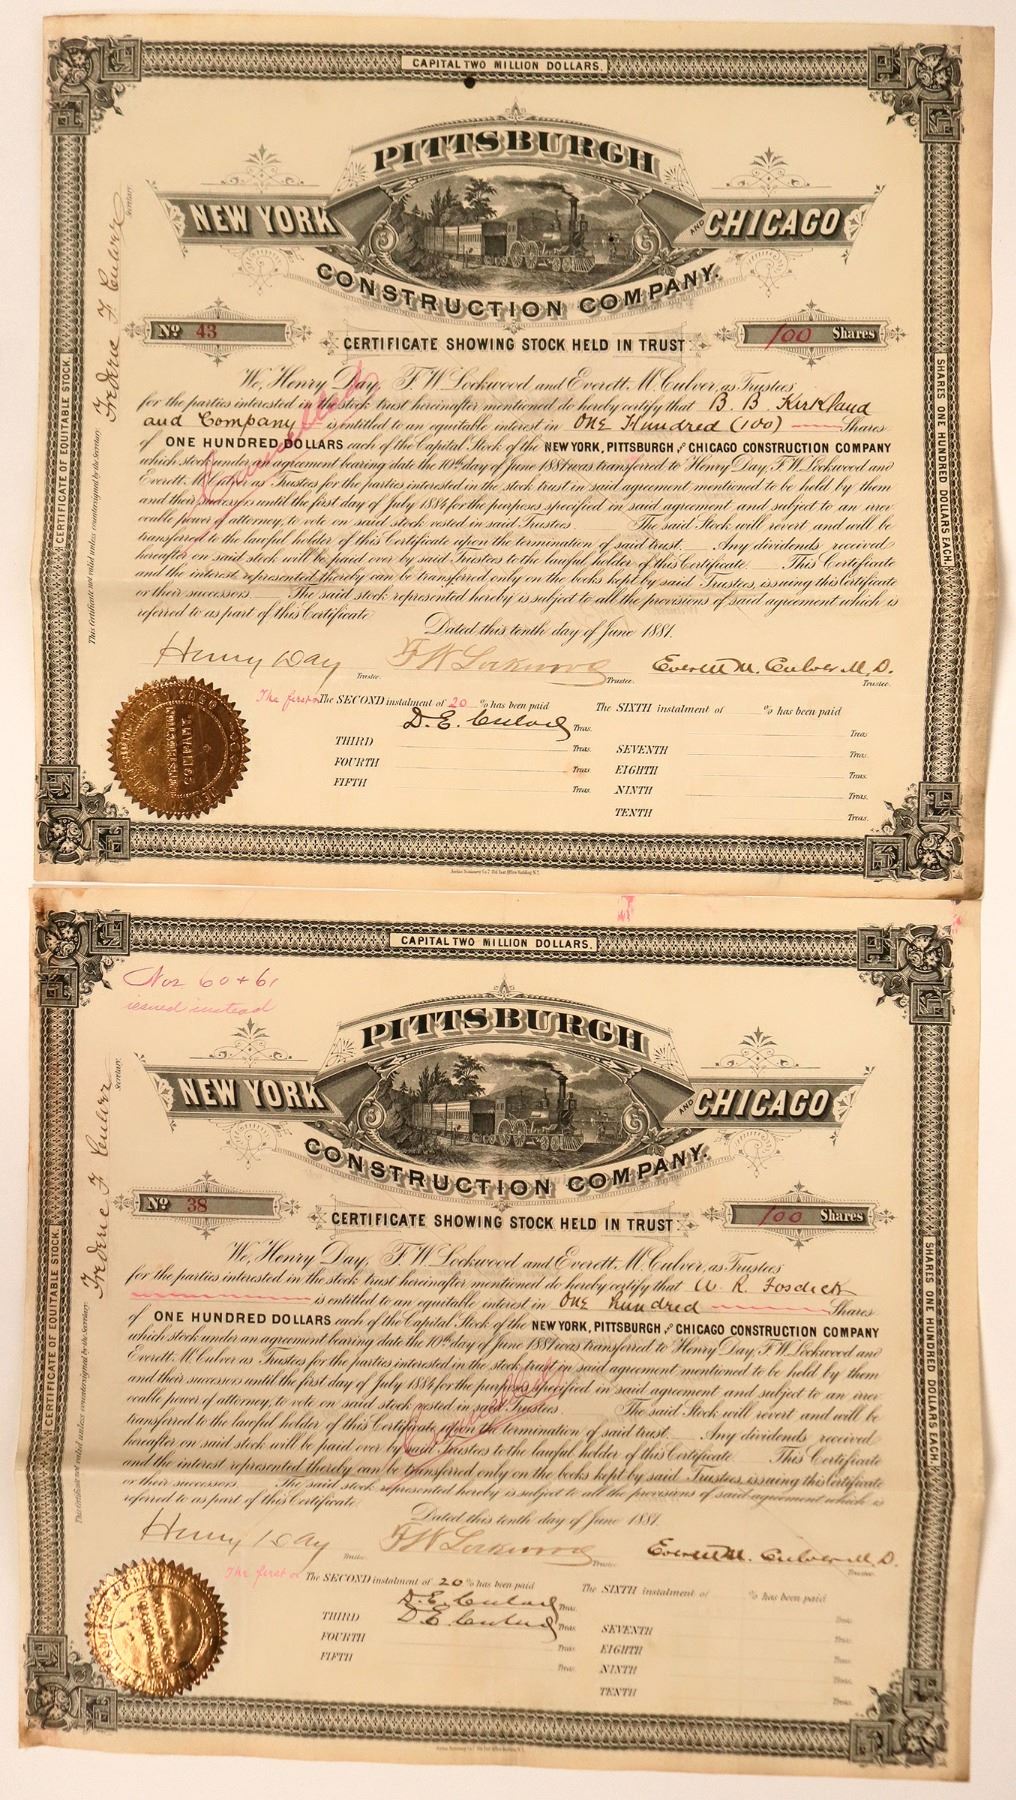 CAPITAL TWO MILLION DOLLARS.
PITTSBURGH
NEW YORK AND CHICAGO
CONSTRUCTION COMPANY.
No 43
100 Shares
CERTIFICATE SHOWING STOCK HELD IN TRUST
CERTIFICATE OF EQUITABLE STOCK.
This Certificate not valid unless countersigned by the Secretary. Frederic F. Culver Secretary.
SHARES ONE HUNDRED DOLLARS EACH.
We, Henry Day, F. W. Lockwood and Everett M. Culver, as Trustees
for the parties interested in the stock trust hereinafter mentioned do hereby certify that B. B. Kirkland
and Company is entitled to an equitable interest in One Hundred (100) Shares
of ONE HUNDRED DOLLARS each of the Capital Stock of the NEW YORK, PITTSBURGH AND CHICAGO CONSTRUCTION COMPANY
which stock under an agreement bearing date the 10th day of June 1881 was transferred to Henry Day, F. W. Lockwood and
Everett M. Culver as Trustees for the parties interested in the stock trust in said agreement mentioned to be held by them
and their successors until the first day of July 1884 for the purposes specified in said agreement and subject to an irrev
ocable power of attorney, to vote on said stock vested in said Trustees. The said Stock will revert and will be
transferred to the lawful holder of this Certificate upon the termination of said trust. Any dividends received
hereafter on said stock will be paid over by said Trustees to the lawful holder of this Certificate. This Certificate
and the interest represented thereby can be transferred only on the books kept by said Trustees, issuing this Certificate
or their successors. The said stock represented hereby is subject to all the provisions of said agreement which is
referred to as part of this Certificate.
Cancelled
Dated this tenth day of June 1881.
Henry Day Trustee.
F W Lockwood Trustee.
Everett M. Culver M, D. Trustee.
The first & The SECOND instalment of 20 % has been paid
D. E. Culver Treas.
The SIXTH instalment of % has been paid
Treas.
THIRD Treas.
SEVENTH Treas.
FOURTH Treas.
EIGHTH Treas.
FIFTH Treas.
NINTH Treas.
TENTH Treas.
CAPITAL TWO MILLION DOLLARS.
Nos 60 + 61
issued instead
PITTSBURGH
NEW YORK AND CHICAGO
CONSTRUCTION COMPANY.
No 38
100 Shares
CERTIFICATE SHOWING STOCK HELD IN TRUST
CERTIFICATE OF EQUITABLE STOCK.
This Certificate not valid unless countersigned by the Secretary. Frederic F. Culver Secretary.
SHARES ONE HUNDRED DOLLARS EACH.
We, Henry Day, F. W. Lockwood and Everett M. Culver, as Trustees
for the parties interested in the stock trust hereinafter mentioned do hereby certify that W. R. Fosdick
is entitled to an equitable interest in One hundred Shares
of ONE HUNDRED DOLLARS each of the Capital Stock of the NEW YORK, PITTSBURGH AND CHICAGO CONSTRUCTION COMPANY
which stock under an agreement bearing date the 10th day of June 1881 was transferred to Henry Day, F. W. Lockwood and
Everett M. Culver as Trustees for the parties interested in the stock trust in said agreement mentioned to be held by them
and their successors until the first day of July 1884 for the purposes specified in said agreement and subject to an irrev
ocable power of attorney, to vote on said stock vested in said Trustees. The said Stock will revert and will be
transferred to the lawful holder of this Certificate upon the termination of said trust. Any dividends received
hereafter on said stock will be paid over by said Trustees to the lawful holder of this Certificate. This Certificate
and the interest represented thereby can be transferred only on the books kept by said Trustees, issuing this Certificate
or their successors. The said stock represented hereby is subject to all the provisions of said agreement which is
referred to as part of this Certificate.
Cancelled
Dated this tenth day of June 1881.
Henry Day Trustee.
F W Lockwood Trustee.
Everett M. Culver M, D. Trustee.
The first & The SECOND instalment of 20 % has been paid
D. E. Culver Treas.
The SIXTH instalment of % has been paid
Treas.
THIRD D. E. Culver Treas.
SEVENTH Treas.
FOURTH Treas.
EIGHTH Treas.
FIFTH Treas.
NINTH Treas.
TENTH Treas.